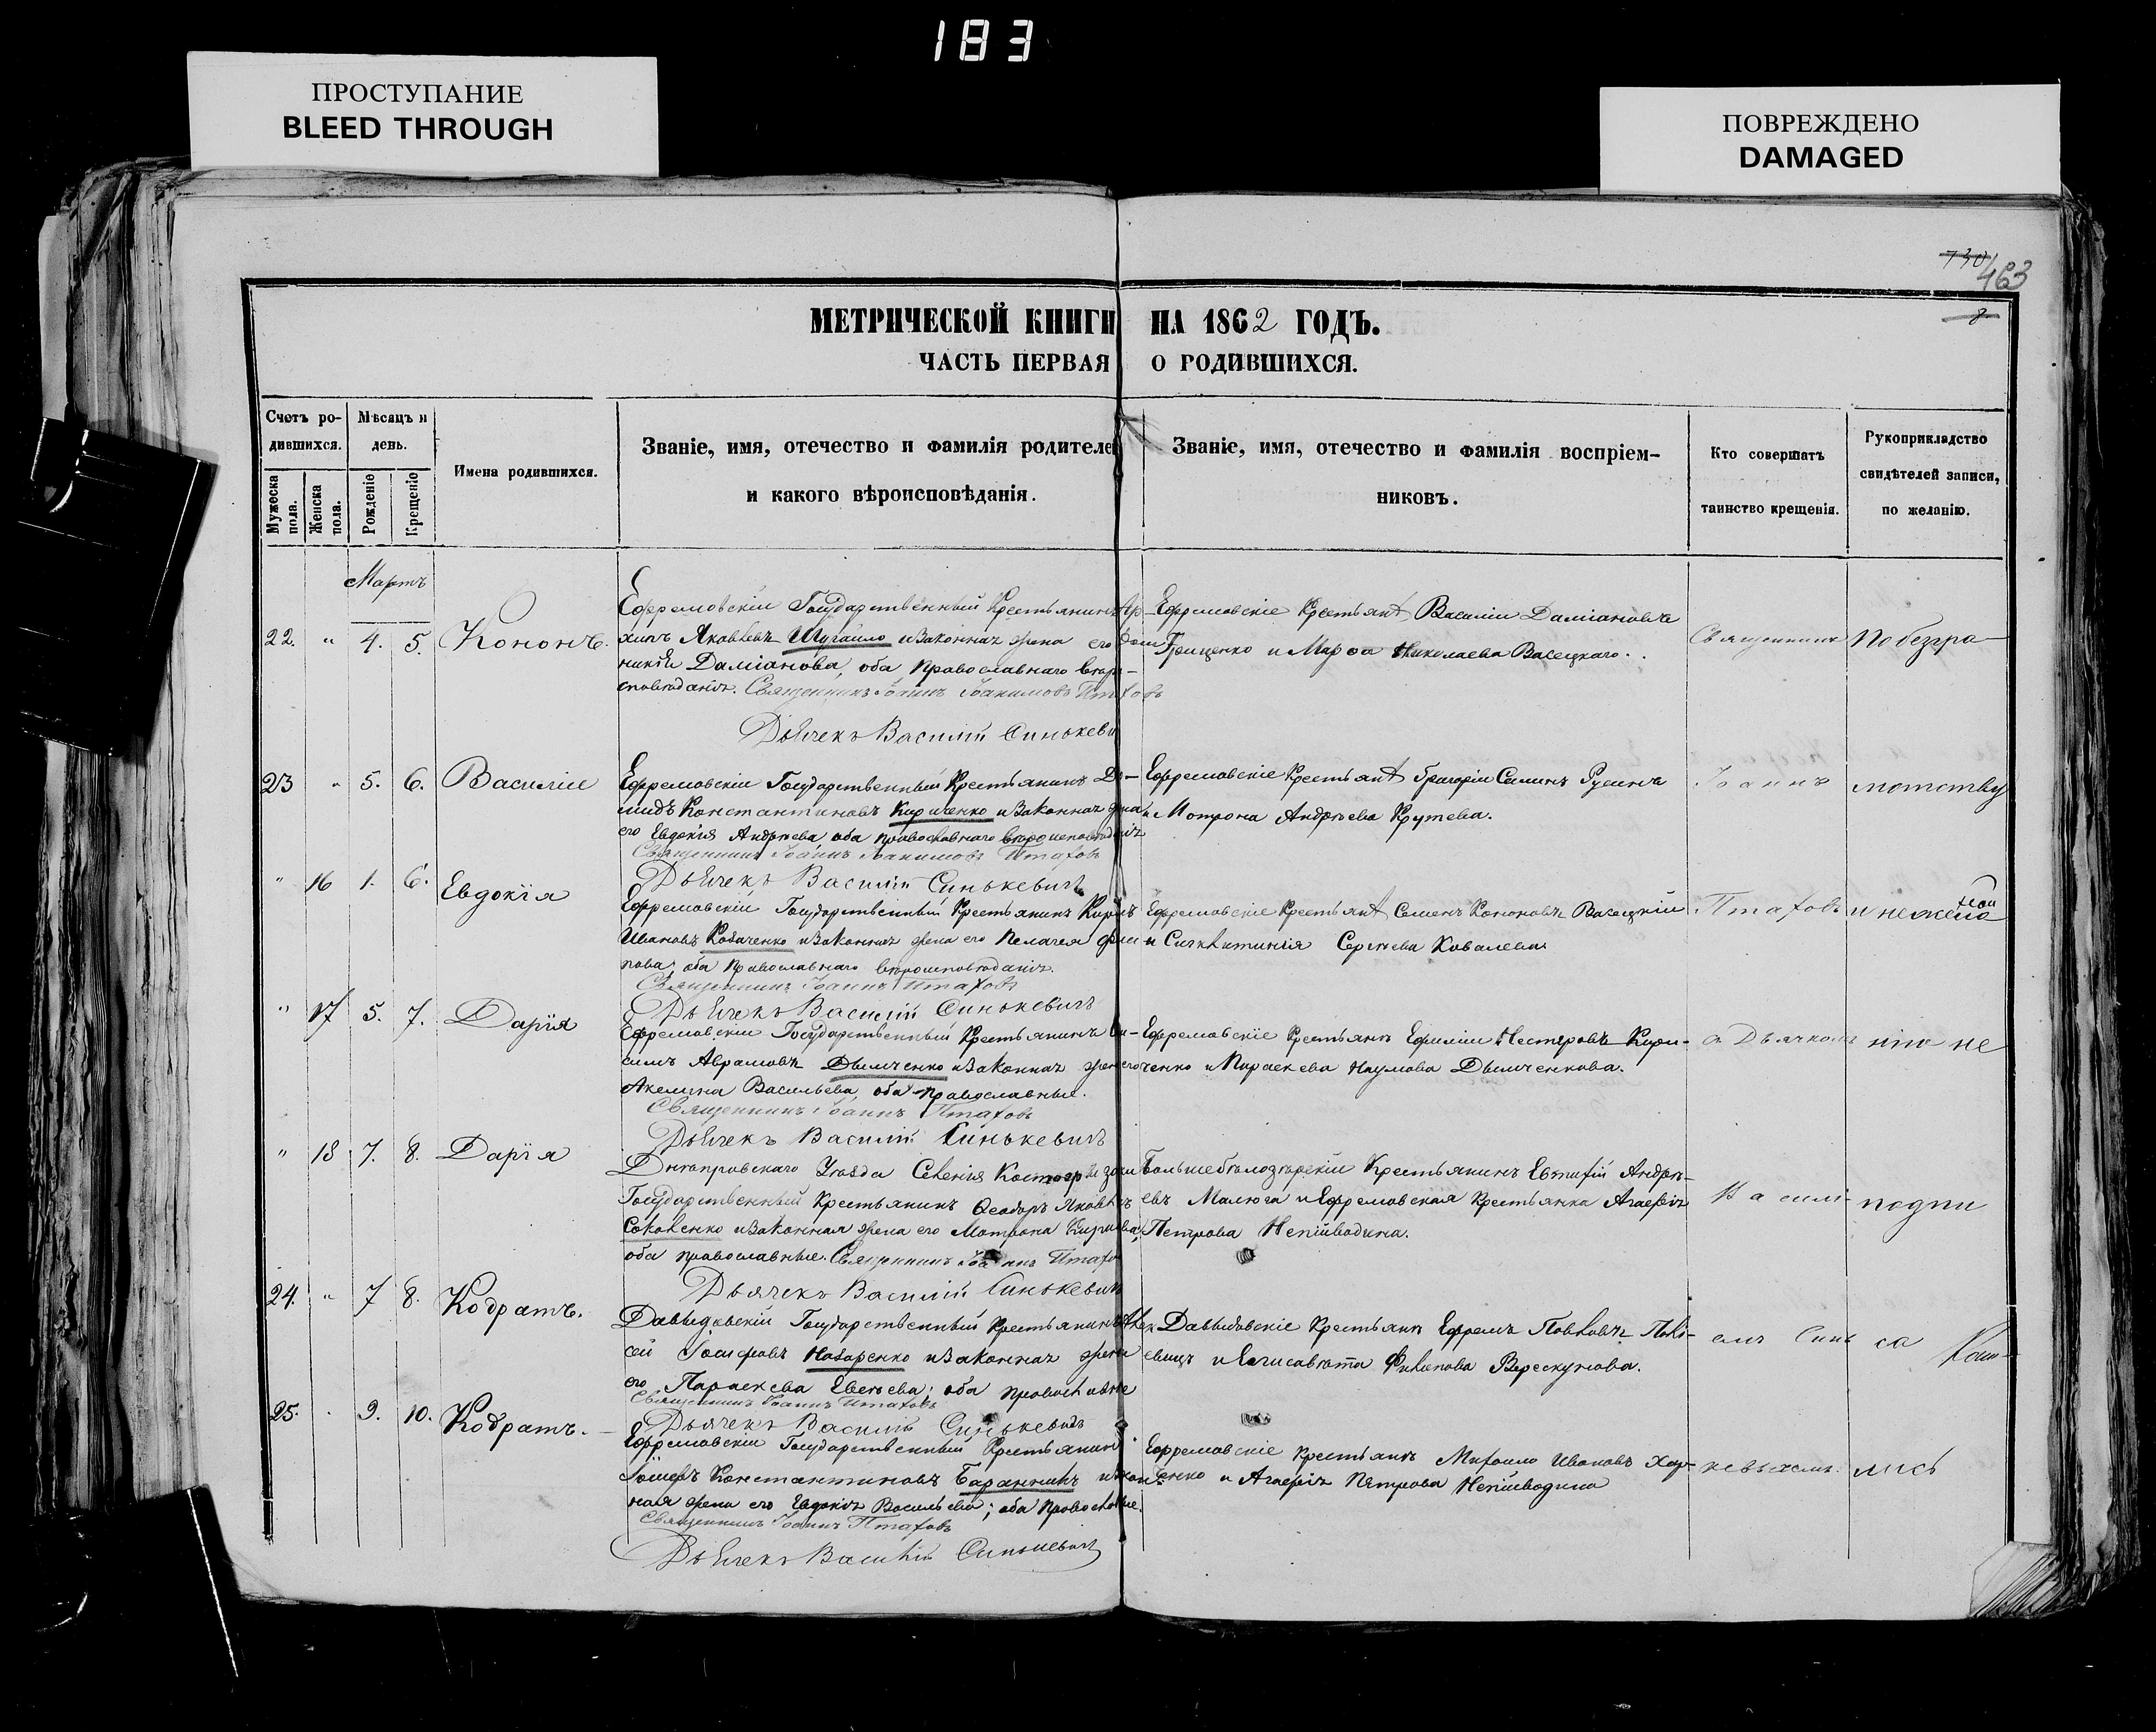 183
ПРОСТУПАНИЕ
BLEED THROUGH
ПОВРЕЖДЕНО
DAMAGED
730
463
8
МЕТРИЧЕСКОЙ КНИГИ НА 1862 ГОДЪ.
ЧАСТЬ ПЕРВАЯ О РОДИВШИХСЯ.
Счетъ ро-
дившихся.
Мужеска пола.
Женска пола.
Мѣсяцъ и
день.
Рожденіе
Крещеніе
Имена родившихся.
Званіе, имя, отечество и фамилія родителе
и какого вѣроисповѣданія.
Званіе, имя, отечество и фамилія воспріем-
никовъ.
Кто совершатъ
таинство крещенія.
Рукоприкладство
свидѣтелей записи,
по желанію.
Мартъ
22. " 4. 5. Кононъ.
Ефремовскій Государственный Крестьянинъ Ар-
хипъ Яковлевъ Шугайло и Законная жена его Дом
никія Даміанова, оба Православнаго вѣрои-
споведанія. Священникъ Іоаннъ Іоакимовъ Птаховъ
Дьячекъ Василій Синькеви
Ефремовскіе Крестьяне Василій Даміановъ
Гриценко и Марѳа Николаева Васецкаго.
Священникъ
По безгра-
23 " 5. 6. Василій
Ефремовскій Государственный Крестьянинъ Де-
мидъ Константиновъ Кириченко и Законная жена
его Евдокія Андрѣева, оба Православнаго вѣроисповѣданія
Священникъ Іоаннъ Іоакимовъ Птаховъ
Дьячекъ Василій Синькевичъ
Ефремовскіе Крестьяне Григорій Саминъ Русинъ
и Мотрона Андрѣева Кутева.
Іоаннъ
мотству
" 16 1. 6. Евдокія
Ефремовскій Государственный Крестьянинъ Кирилъ
Ивановъ Кобаченко и Законная жена его Пелагея Фили
пова, оба Православнаго вѣроисповѣданія.
Священникъ Іоаннъ Птаховъ
Дьячекъ Василій Синькевичъ
Ефремовскіе Крестьяне Семенъ Кононовъ Васецкій
и Синклитикія Сергѣева Ковалева
Птаховъ
и нежела
" 17 5. 7. Дарія
Ефремовскій Государственный Крестьянинъ Он-
симъ Аврамовъ Дымченко и Законная жена его
Акелина Васильева, оба Православные.
Священникъ Іоаннъ Птаховъ
Дьячекъ Василій Синькевичъ
Ефремовскіе Крестьяне Ефимій Нестеровъ Кири-
ченко и Параскева Наумова Дымченкова.
съ Дьячкомъ
нію не
" 18 7. 8. Дарія
Днѣпровскаго Уѣзда Селенія
Государственный Крестьянинъ Ѳеодоръ Яковлевъ
Соколенко и Законная жена его Мотрона Кирилева;
оба православные. Священникъ Іоаннъ Птахо
Дьячекъ Василій Синькевичъ
Большебѣлозѣрскій Крестьянинъ Евтихій Андрѣ-
евъ Малюга и Ефремовская Крестьянка Агафія
Петрова Непійводина.
Василі-
подпи
24. " 7 8. Кодратъ.
Давыдовскій Государственный Крестьянинъ Алек
сей Іосифовъ Назаренко и Законная жена
его Параскева Евсѣева; оба Православные
Священникъ Іоаннъ Птаховъ
Дьячекъ Василій Синькевичъ
Давыдовскіе Крестьяне Ефремъ Павловъ
и Елисавета Филипова Верескунова.
емъ Синь
са
25. " 9. 10. Кодратъ.
Ефремовскій Государственный Крестьянинъ
Іосифъ Константиновъ Баранникъ и Закон
ная жена его Евдокія Васильева; оба Православные.
Священникъ Іоаннъ Птаховъ
Дьячекъ Василій Синькевичъ
Ефремовскіе Крестьяне Михайло Ивановъ Хар-
ченко и Агафія Петрова Непійводина
кевичемъ.
лись